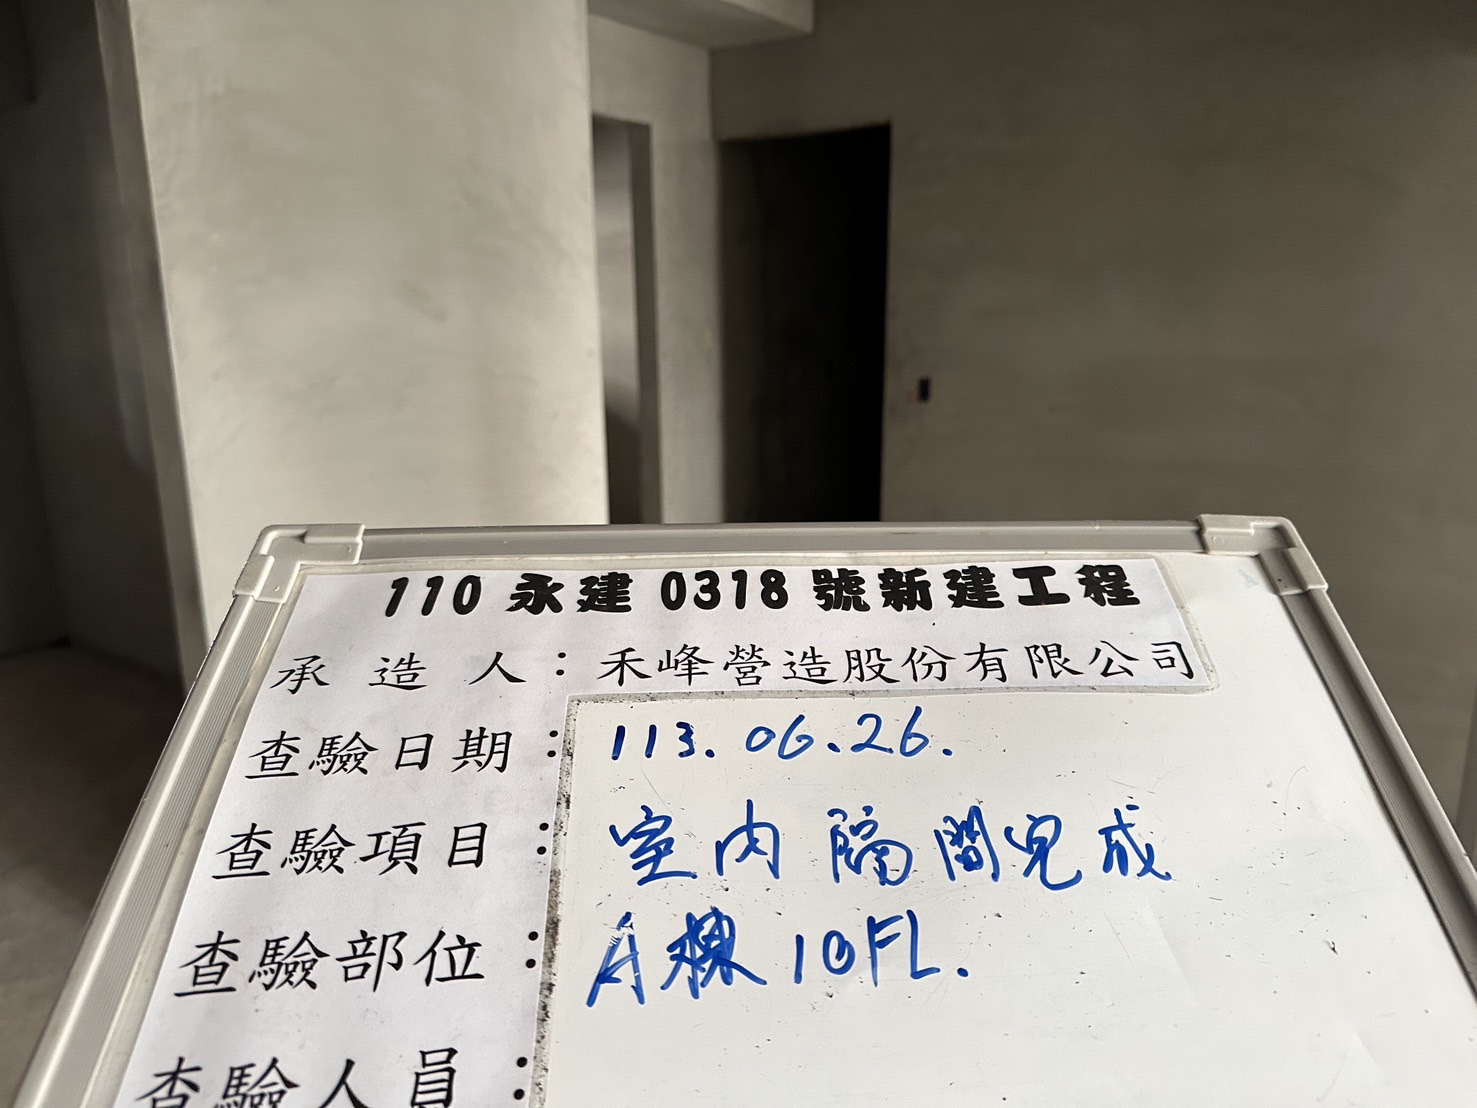 110 永建 0318 號新建工程
承造人：禾峰營造股份有限公司
查驗日期：113.06.26.
查驗項目：室內隔間完成
查驗部位：A棟10FL.
查驗人員：